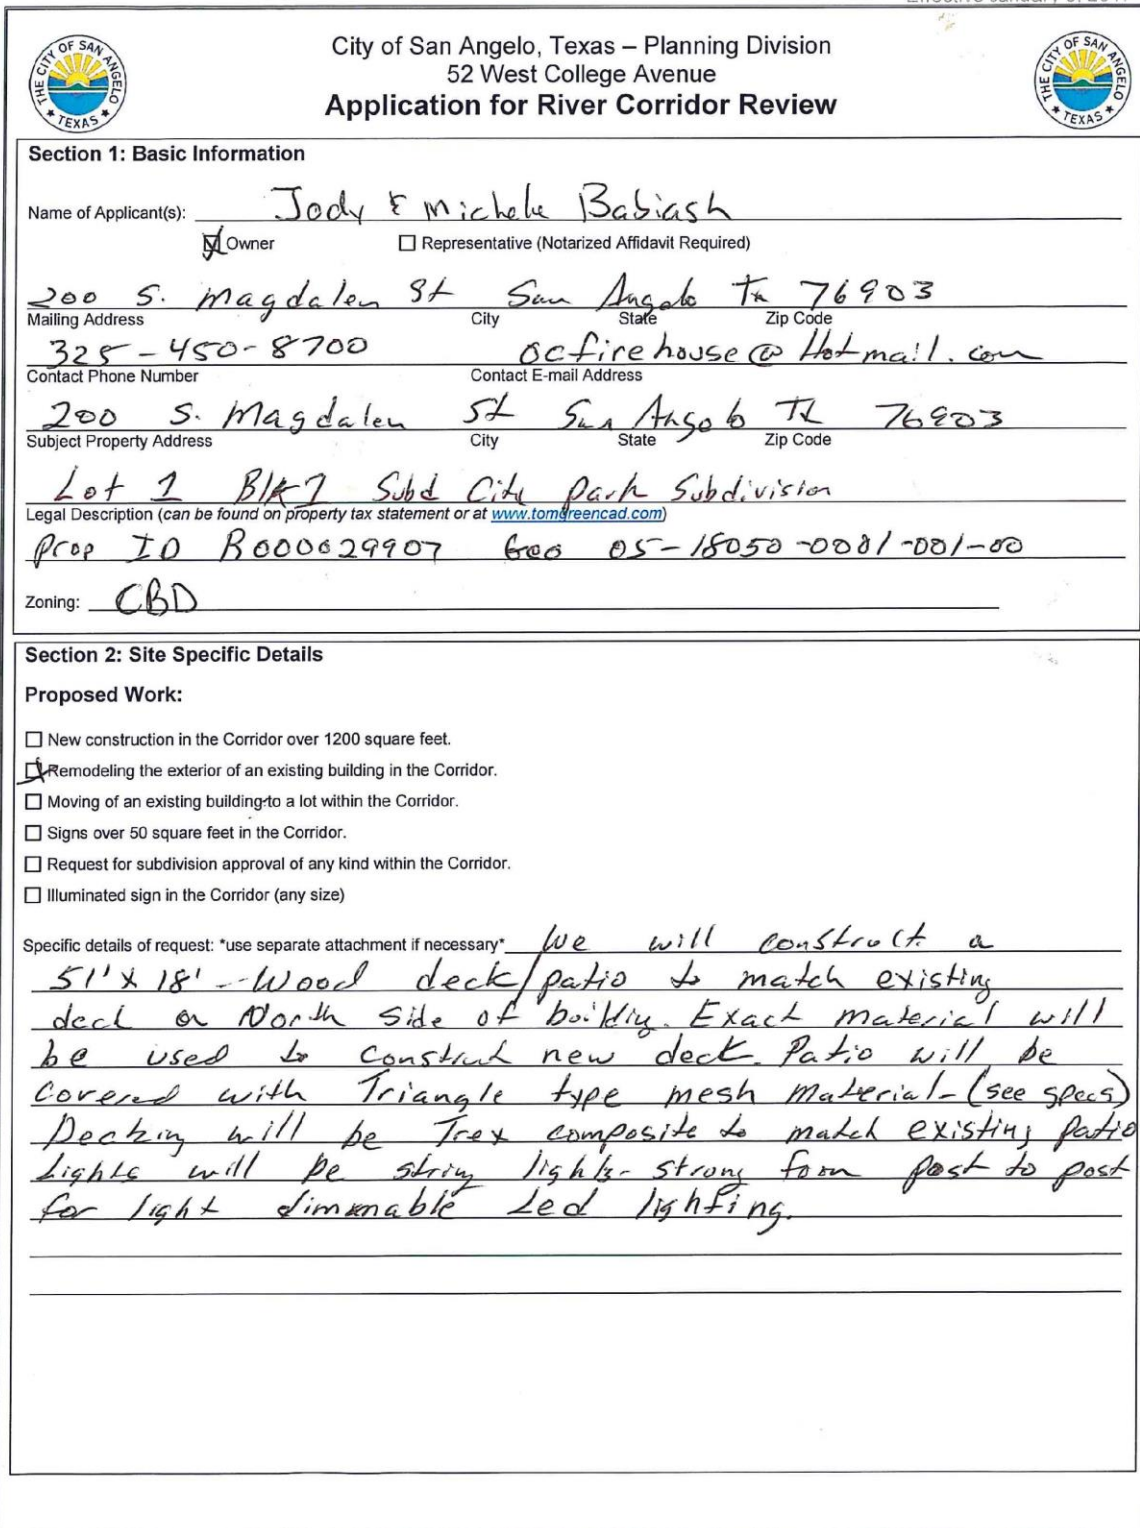 City of San Angelo, Texas – Planning Division
52 West College Avenue
Application for River Corridor Review
THE CITY OF SAN ANGELO
★ TEXAS ★
THE CITY OF SAN ANGELO
★ TEXAS ★
Section 1: Basic Information
Name of Applicant(s): Jody & Michele Babiash
Owner Representative (Notarized Affidavit Required)
200 S. Magdalen St San Angelo Tx 76903
Mailing Address City State Zip Code
325-450-8700 ocfirehouse@Hotmail.com
Contact Phone Number Contact E-mail Address
200 S. Magdalen St San Angelo TX 76903
Subject Property Address City State Zip Code
Lot 1 Blk 7 Subd City Park Subdivision
Legal Description (can be found on property tax statement or at www.tomgreencad.com)
Prop ID R000029907 Geo 05-18050-0081-001-00
Zoning: CBD
Section 2: Site Specific Details
Proposed Work:
New construction in the Corridor over 1200 square feet.
Remodeling the exterior of an existing building in the Corridor.
Moving of an existing building to a lot within the Corridor.
Signs over 50 square feet in the Corridor.
Request for subdivision approval of any kind within the Corridor.
Illuminated sign in the Corridor (any size)
Specific details of request: *use separate attachment if necessary* We will construct a
51' x 18' -- Wood deck/patio to match existing
deck on North side of building. Exact material will
be used to construct new deck. Patio will be
covered with Triangle type mesh material - (see specs)
Decking will be Trex composite to match existing patio
Lights will be string lights - strong from post to post
for light dimmable Led lighting.